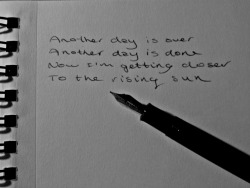 Another day is over
Another day is done
Now I'm getting closer
To the rising sun